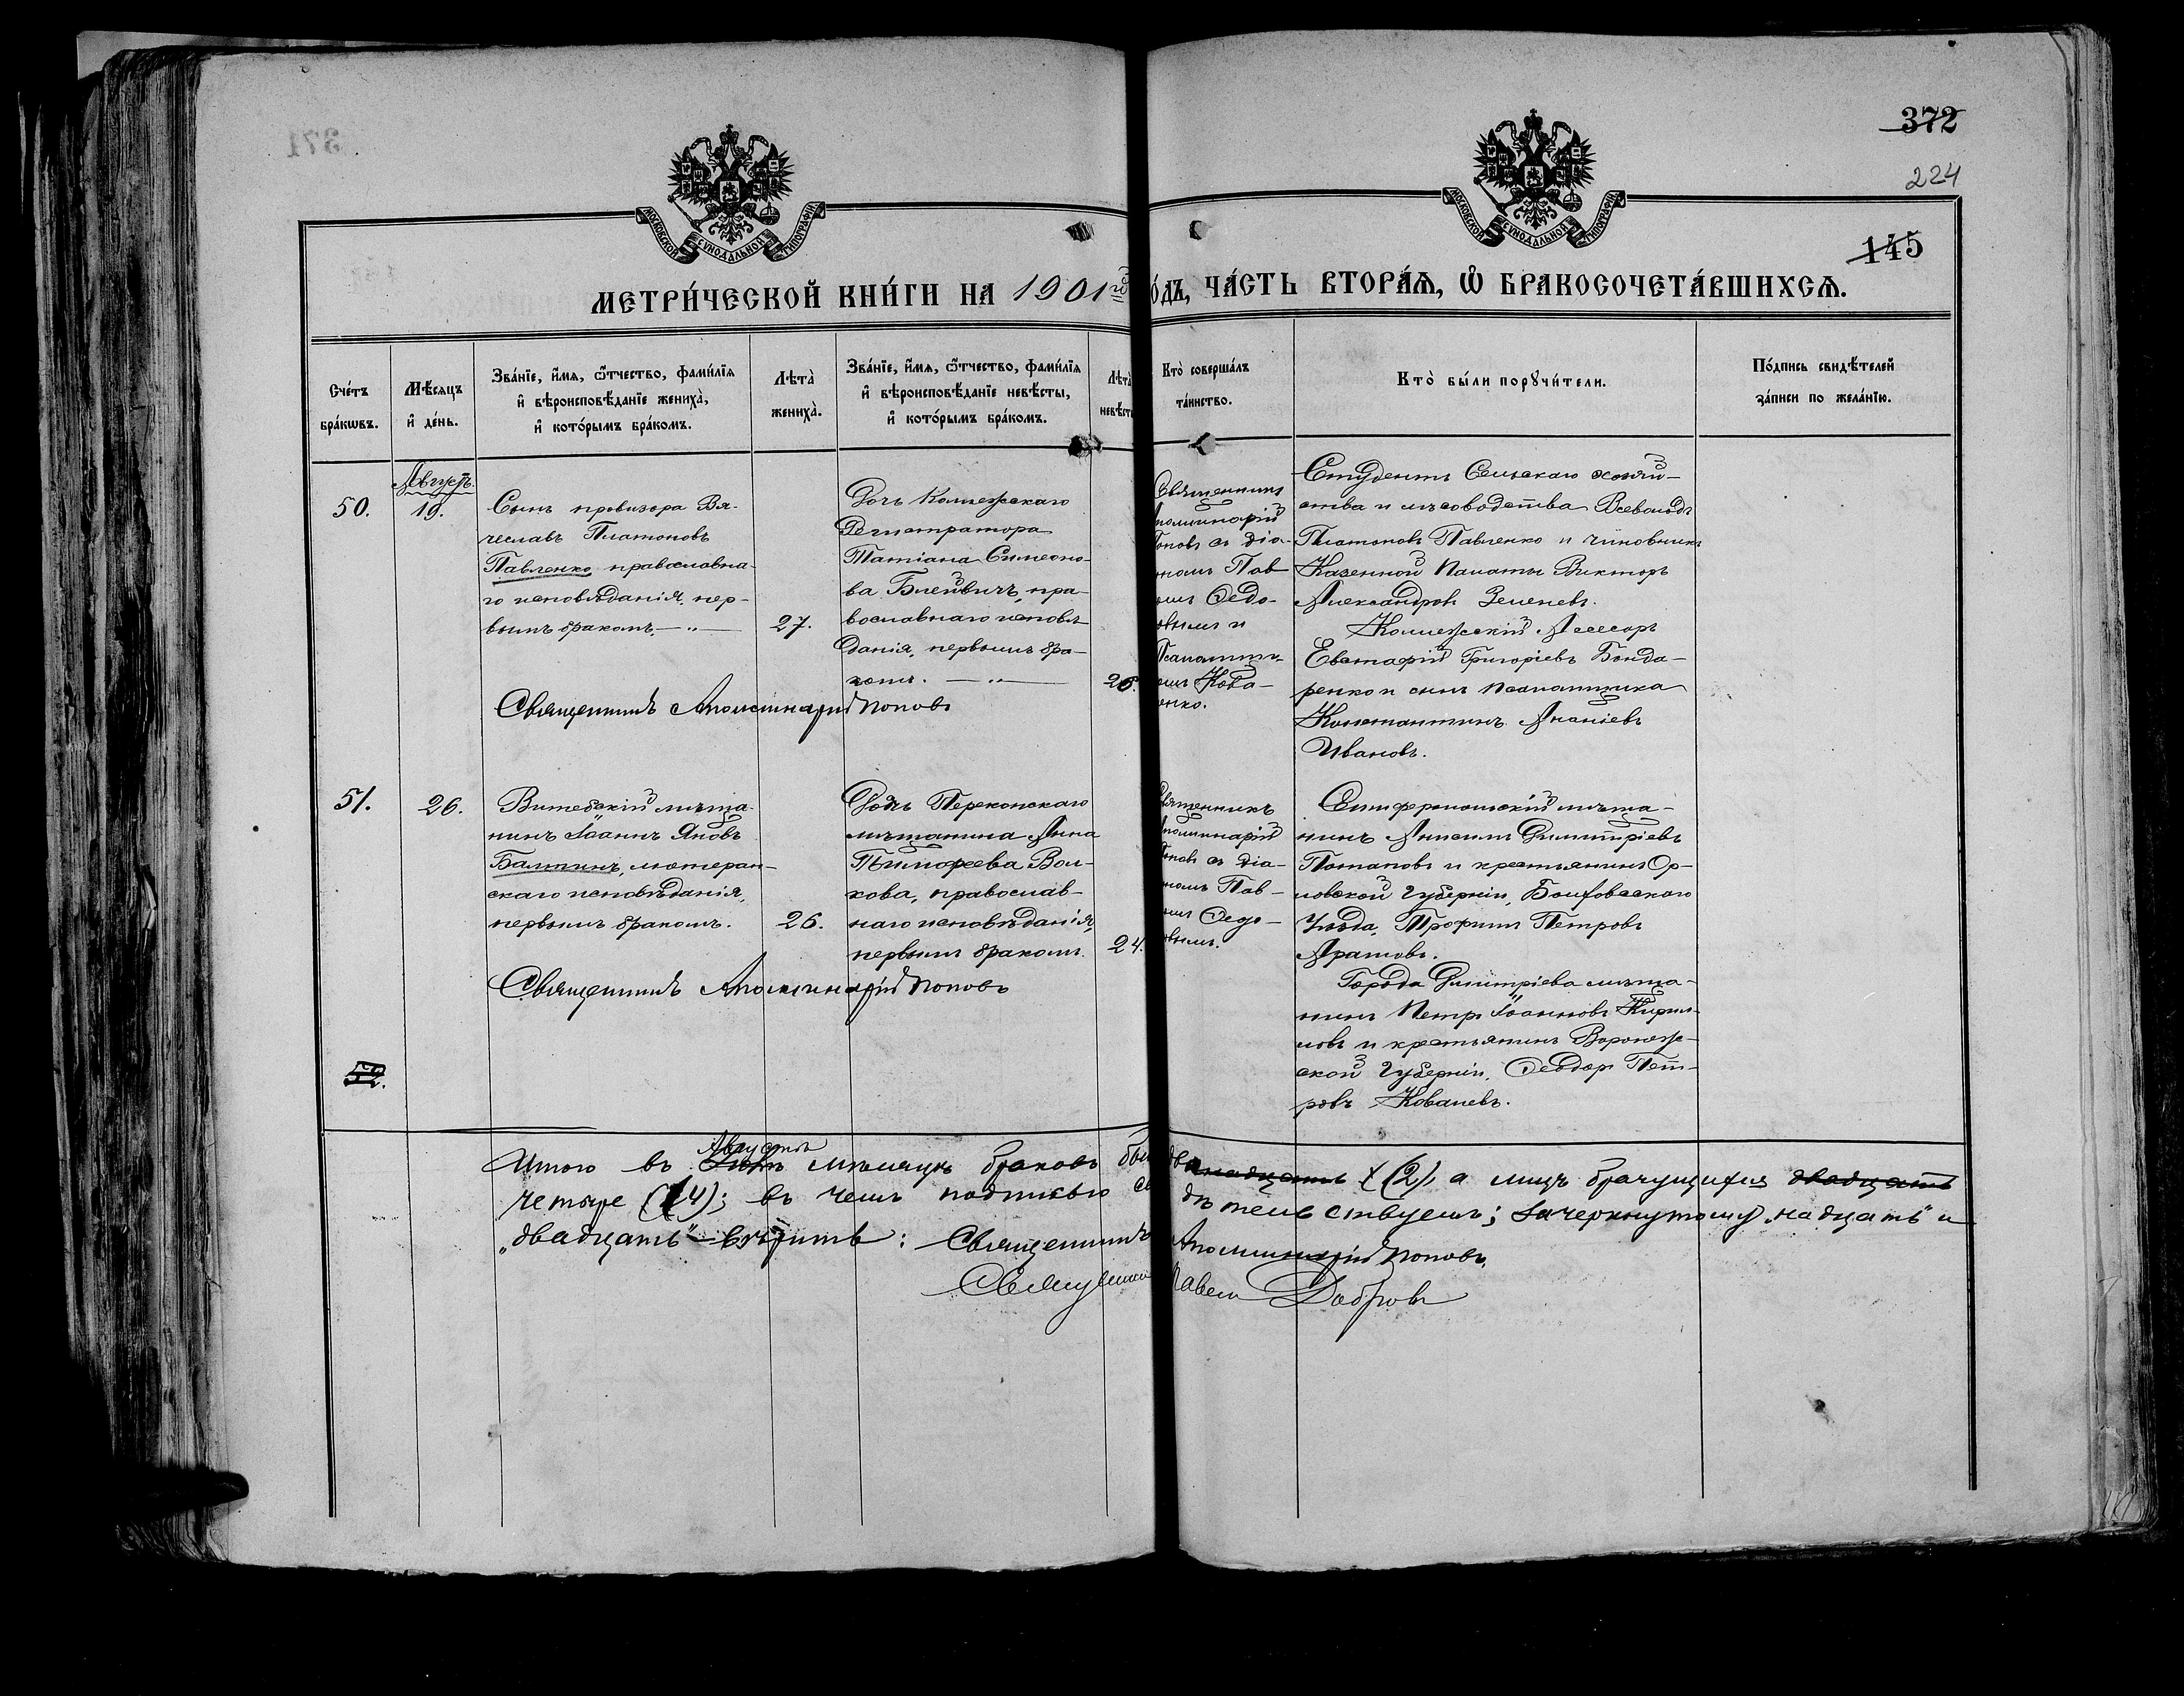 372
224
145
МОСКОВСКОЙ СѴНОДАЛЬНОЙ ТИПОГРАФІИ
МОСКОВСКОЙ СѴНОДАЛЬНОЙ ТИПОГРАФІИ
МЕТРИ́ЧЕСКОЙ КНИ́ГИ НА 1901 го́дъ, ЧА́СТЬ ВТОРА́Ѧ, Ѡ҆ БРАКОСОЧЕТА́ВШИХСѦ.
Сче́тъ
бра́кѡвъ.
Мѣ́сяцъ
и҆ де́нь.
Зва́нїе, и҆́мя, ѻ҆́тчество, фами́лїя
и҆ вѣроисповѣ́данїе жениха̀,
и҆ кото́рымъ бра́комъ.
Лѣта̀
жениха̀.
Зва́нїе, и҆́мя, ѻ҆́тчество, фами́лїя
и҆ вѣроисповѣ́данїе невѣ́сты,
и҆ кото́рымъ бра́комъ.
Лѣта̀
невѣ́ст
Кто̀ соверша́лъ
та́инство.
Кто̀ бы́ли порꙋчи́тели.
По́дпись свидѣ́телей
за́писи по жела́нїю.
Августъ.
50.
19.
Сынъ провизора Вя-
чеславъ Платоновъ
Павленко православна-
го исповѣданія, пер-
вымъ бракомъ. — „ —
27.
Дочь Коллежскаго
Регистратора
Татіана Симеоно-
ва Блейвичъ, пра-
вославнаго исповѣ-
данія, первымъ бра-
комъ. — „ —
26.
Священникъ
Аполлинарій
Поповъ съ діа-
кономъ Пав
ломъ Ѳедо-
овымъ и
Псаломщи-
омъ Кова-
енко.
Студентъ Сельскаго хозяй-
ства и лѣсоводства Всеволодъ
Платоновъ Павленко и чиновникъ
Казенной Палаты Викторъ
Александровъ Зеленевъ.
Коллежскій Асессоръ
Евстафій Григоріевъ Бонда-
ренко и сынъ псаломщика
Константинъ Ананіевъ
Ивановъ.
Священникъ Аполлинарій Поповъ
51.
26.
Витебскій мѣща-
нинъ Іоаннъ Яновъ
Балтинъ, лютеран-
скаго исповѣданія,
первымъ бракомъ.
26.
Дочь Перекопскаго
мѣщанина Анна
Тимоѳеева Вол-
кова, православ-
наго исповѣданія,
первымъ бракомъ.
24.
вященникъ
Аполлинарій
Поповъ съ діа-
кономъ Пав-
омъ Ѳедо-
овымъ.
Симферопольскій мѣща-
нинъ Анисимъ Димитріевъ
Потаповъ и крестьянинъ Ор-
ловской губерніи, Болховскаго
Уѣзда, Трофимъ Петровъ
Аратовъ.
Города Дмитріева мѣща-
нинъ Петръ Іоанновъ Кирил-
ловъ и крестьянинъ Воронеж-
ской Губерніи, Ѳеодоръ Пет-
ровъ Ковалевъ.
Священникъ Аполлинарій Поповъ
52.
Августѣ
Итого въ мѣсяцѣ браковъ бы два надцать (2), а лицъ брачущихся двадцать
четыре (4); въ чемъ подписью свидѣтельствуемъ; зачеркнутому „надцать" и
„двадцать" — вѣрить: Священникъ Аполлинарій Поповъ.
Священник Павел Добровъ